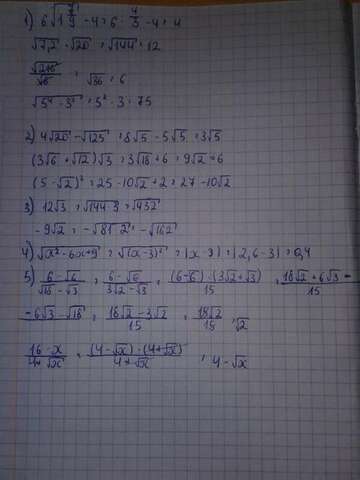 1) 6√1 7/9 - 4 = 6 · 4/3 - 4 = 4
√7,2 · √20 = √144 = 12
√216/√6 = √36 = 6
√5⁴ · 3² = 5² · 3 = 75
2) 4√20 - √125 = 8√5 - 5√5 = 3√5
(3√6 + √12)√3 = 3√18 + 6 = 9√2 + 6
(5 - √2)² = 25 - 10√2 + 2 = 27 - 10√2
3) 12√3 = √144·3 = √432
-9√2 = -√81·2 = -√162
4) √x² - 6x + 9 = √(x-3)² = |x-3| = |2,6-3| = 0,4
5) 6-√6/√18-√3 = 6-√6/3√2-√3 = (6-√6)·(3√2+√3)/15 = 18√2+6√3-/15
-6√3-√18 = 18√2-3√2/15 = 15 = √2
16-x/4+√x = (4-√x)·(4+√x)/4+√x = 4-√x